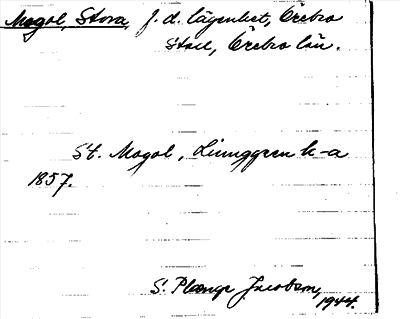 Mogol, Stora, f.d. lägenhet, Örebro
stad, Örebro län.
St. Mogol, Ljunggren k-a
1857.
S. Plænge Jacobson,
1944.